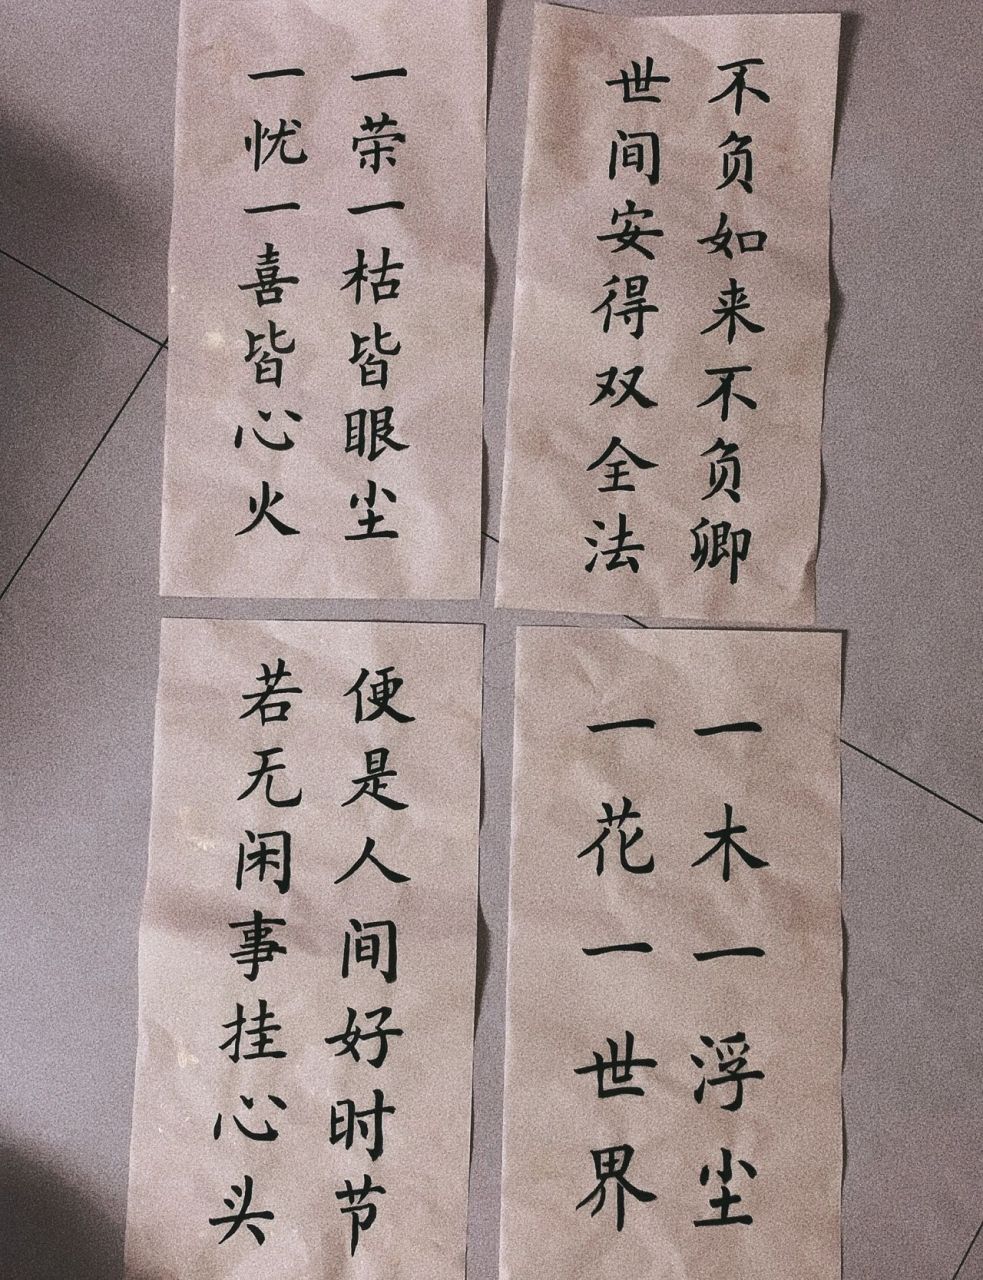 一忧一喜皆心火
一荣一枯皆眼尘
世间安得双全法
不负如来不负卿
若无闲事挂心头
便是人间好时节
一花一世界
一木一浮尘